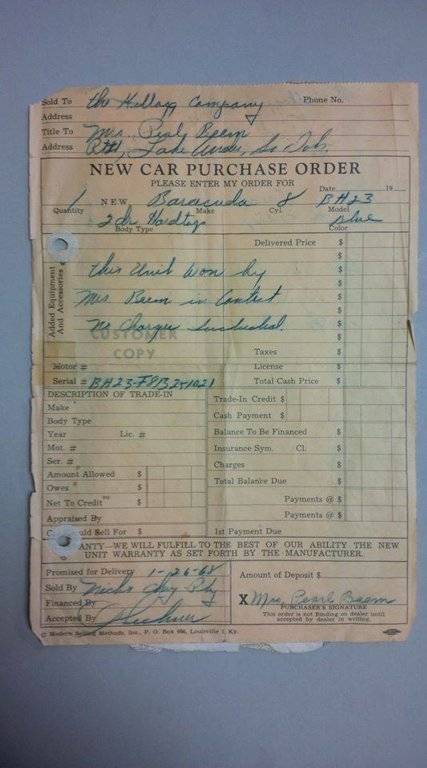 Sold To the Kellogg Company Phone No.
Address
Title To Mrs. Pearl Baem
Address Rt 1, Lake Andes, So Dak.
NEW CAR PURCHASE ORDER
PLEASE ENTER MY ORDER FOR
Date 19
1 NEW Baracuda 8 BH23
Quantity Make Cyl. Model
2 dr Hardtop Blue
Body Type Color
Added Equipment And Accessories
Delivered Price $
$
this Unit Won by $
$
Mrs. Baem in Contest $
$
No Charges $
CUSTOMER
COPY
Taxes $
Motor # License $
Serial # BH23-F8B251021 Total Cash Price $
DESCRIPTION OF TRADE-IN Trade-In Credit $
Make Cash Payment $
Body Type Balance To Be Financed $
Year Lic. # Insurance Sym. Cl. $
Mot. # Charges $
Ser. # Total Balance Due $
Amount Allowed $
Owes $ Payments @ $
Net To Credit $ Payments @ $
Appraised By
Could Sell For $ 1st Payment Due
WE WILL FULFILL TO THE BEST OF OUR ABILITY THE NEW
UNIT WARRANTY AS SET FORTH BY THE MANUFACTURER.
Promised for Delivery 1-26-68 Amount of Deposit $
Sold By
Financed By X Mrs. Pearl Baem
PURCHASER'S SIGNATURE
Accepted By
This order is not binding on dealer until
accepted by dealer in writing.
© Modern Selling Methods, Inc., P. O. Box 996, Louisville 1, Ky.